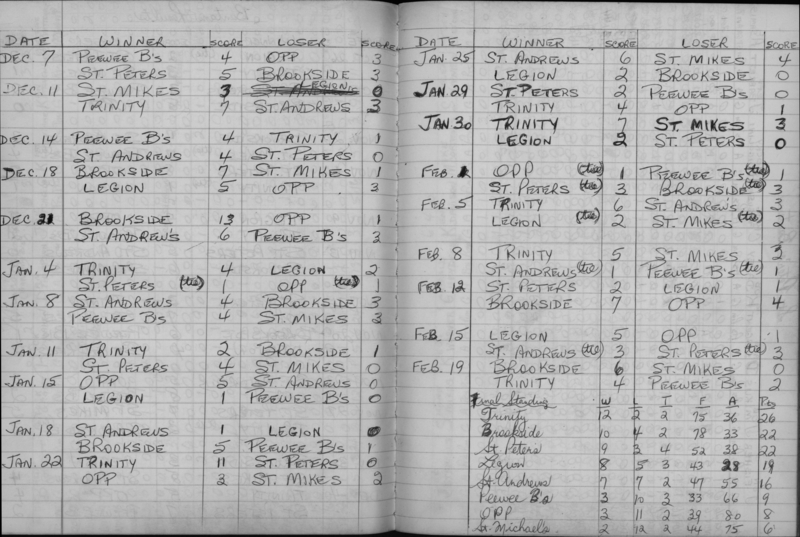 DATE WINNER SCORE LOSER SCORE
DEC. 7 PEEWEE B's 4 OPP 3
ST. PETERS 5 BROOKSIDE 3
DEC. 11 ST. MIKES 3 LEGION 0
TRINITY 7 ST. ANDREWS 3
DEC. 14 PEEWEE B's 4 TRINITY 1
ST. ANDREWS 4 ST. PETERS 0
DEC. 18 BROOKSIDE 7 ST. MIKES 1
LEGION 5 OPP 3
DEC. 21 BROOKSIDE 13 OPP 1
ST. ANDREW'S 6 PEEWEE B's 3
JAN. 4 TRINITY 4 LEGION 2
ST. PETERS (tie) 1 OPP (tie) 1
JAN. 8 ST. ANDREWS 4 BROOKSIDE 3
PEEWEE B's 4 ST. MIKES 3
JAN. 11 TRINITY 2 BROOKSIDE 1
ST. PETERS 4 ST. MIKES 0
JAN. 15 OPP 5 ST. ANDREWS 0
LEGION 1 PEEWEE B's 0
JAN. 18 ST ANDREWS 1 LEGION 0
BROOKSIDE 5 PEEWEE B's 1
JAN. 22 TRINITY 11 ST. PETERS 0
OPP 3 ST. MIKES 2
DATE WINNER SCORE LOSER SCORE
JAN. 25 ST. ANDREWS 6 ST. MIKES 4
LEGION 2 BROOKSIDE 0
JAN 29 ST. PETERS 2 PEEWEE B's 0
TRINITY 4 OPP 1
JAN. 30 TRINITY 7 ST. MIKES 3
LEGION 2 ST. PETERS 0
FEB. 1 OPP (tie) 1 PEEWEE B's (tie) 1
ST. PETERS (tie) 3 BROOKSIDE (tie) 3
FEB. 5 TRINITY 6 ST. ANDREW'S 3
LEGION (tie) 2 ST. MIKES (tie) 2
FEB. 8 TRINITY 5 ST. MIKES 3
ST. ANDREWS (tie) 1 PEEWEE B's (tie) 1
FEB. 12 ST. PETERS 2 LEGION 1
BROOKSIDE 7 OPP 4
FEB. 15 LEGION 5 OPP 1
ST. ANDREWS (tie) 3 ST. PETERS (tie) 3
FEB. 19 BROOKSIDE 6 ST. MIKES 0
TRINITY 4 PEEWEE B's 2
Final Standing W L T F A Pts
Trinity 12 2 2 75 36 26
Brookside 10 4 2 78 33 22
St. Peters 9 3 4 52 38 22
Legion 8 5 3 43 28 19
St. Andrews 7 7 2 47 55 16
Peewee B's 3 10 3 33 66 9
OPP 3 11 2 39 80 8
St. Michaels 2 12 2 44 75 6